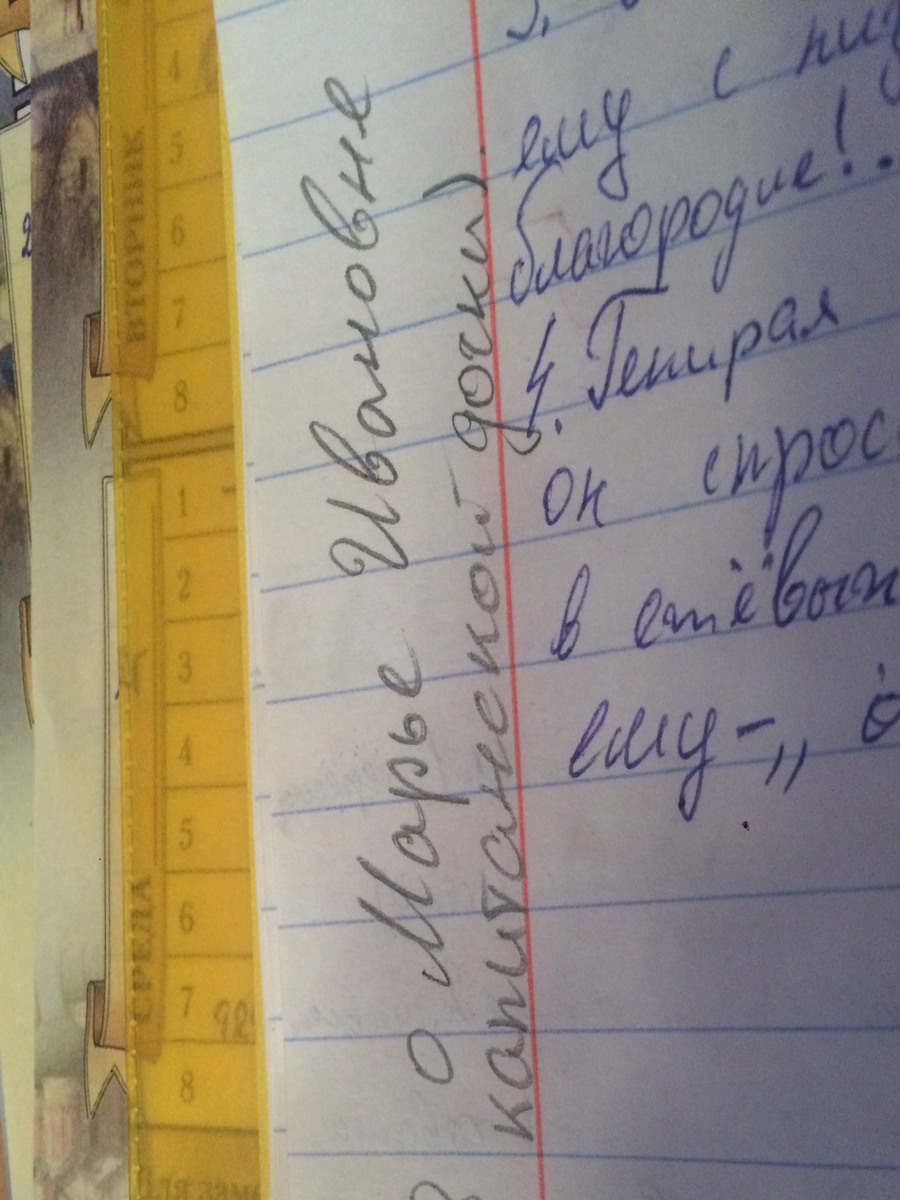 о Марье Ивановне
капитанской дочки).
ему с
благородие!.
4. Генерал
он спрос
в
ему - „
ВТОРНИК
4
5
6
7
8
СРЕДА
1
2
3
4
5
6
7
8
Для заме